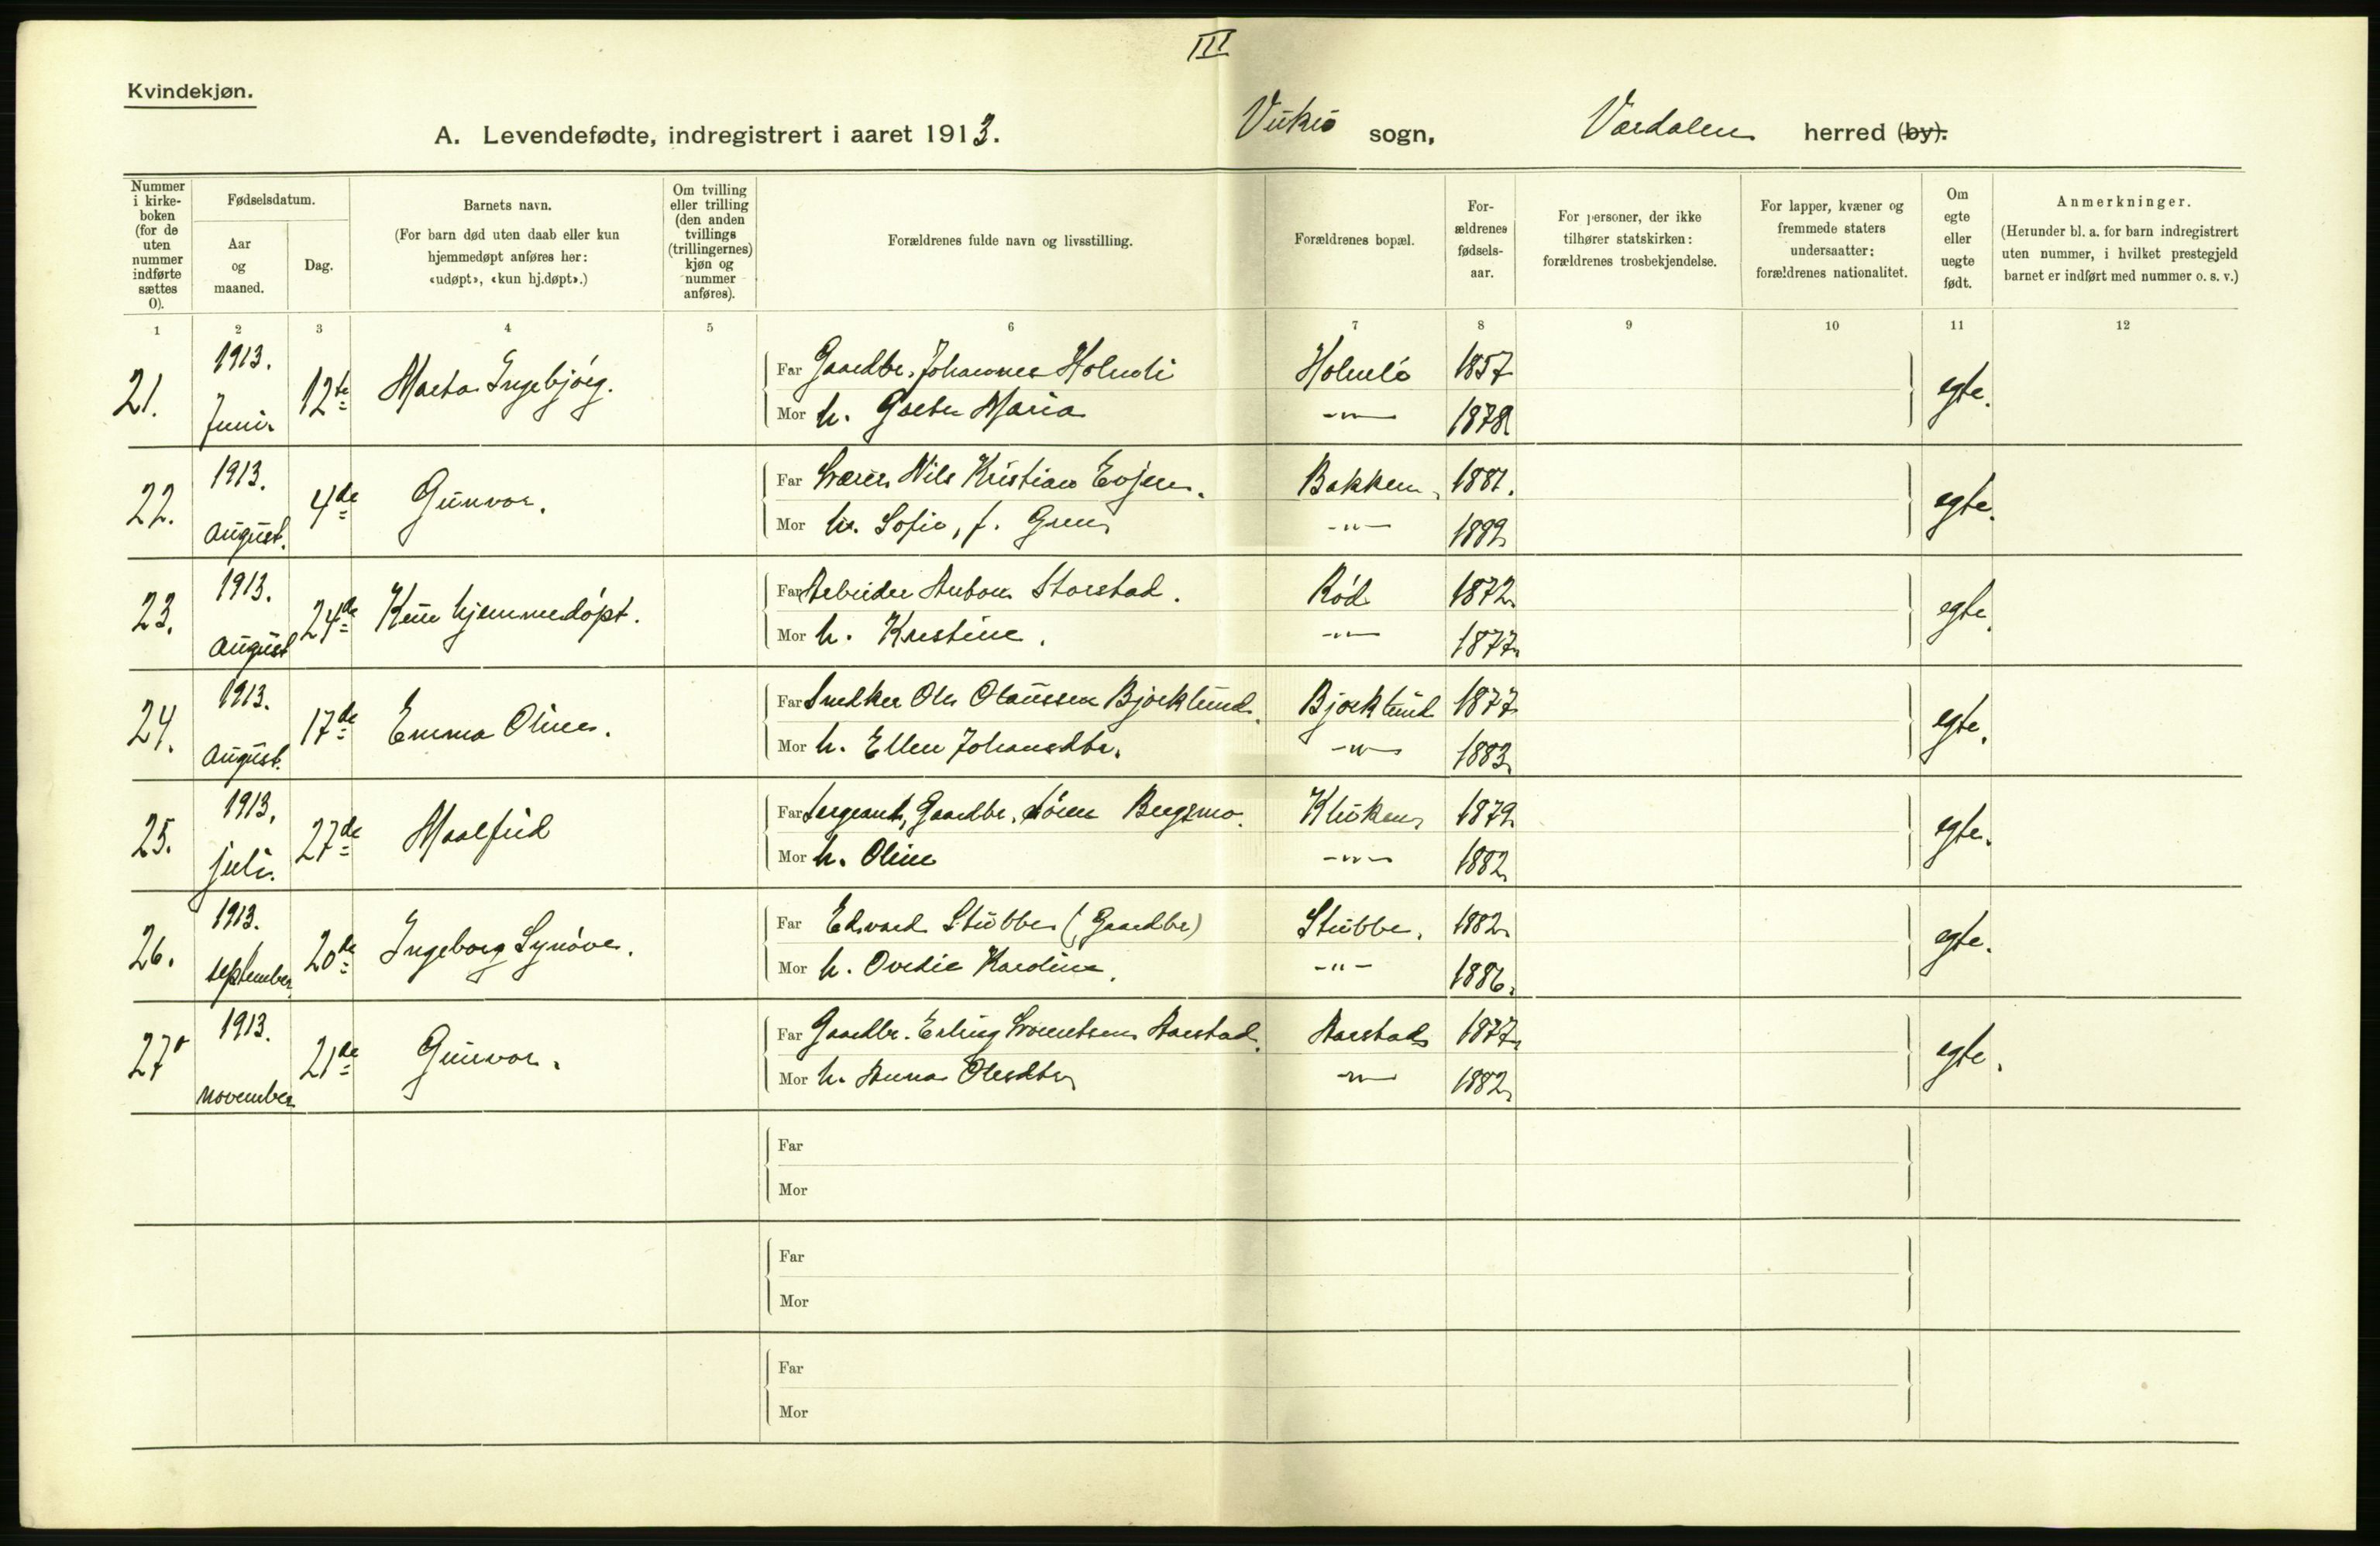 III
Kvindekjøn.
A. Levendefødte, indregistrert i aaret 1913.
Vuku sogn, Værdalen herred (by).
Nummer i kirke-boken (for de uten nummer indførte sættes 0).
Fødselsdatum.
Aar og maaned.
Dag.
Barnets navn.
(For barn død uten daab eller kun hjemmedøpt anføres her: «udøpt», «kun hj.døpt».)
Om tvilling eller trilling (den anden tvillings (trillingernes) kjøn og nummer anføres).
Forældrenes fulde navn og livsstilling.
Forældrenes bopæl.
For-ældrenes fødsels-aar.
For personer, der ikke tilhører statskirken: forældrenes trosbekjendelse.
For lapper, kvæner og fremmede staters undersaatter: forældrenes nationalitet.
Om egte eller uegte født.
Anmerkninger.
(Herunder bl. a. for barn indregistrert uten nummer, i hvilket prestegjeld barnet er indført med nummer o. s. v.)
1 2 3 4 5 6 7 8 9 10 11 12
21. 1913. Juni. 12te Marta Ingebjørg. egte.
Far Gaardbr. Johannes Holmli Holmli 1857
Mor h. Maria -"- 1878
22. 1913. August. 4de Gunvor. egte.
Far Nils Kristian Evjen. Bakken, 1881.
Mor h. Sofie, f. Green -"- 1889
23. 1913. August 24de Kun hjemmedøpt. egte.
Far Arbeider Anton Storstad. Rød 1872.
Mor h. Kristine. -"- 1877.
24. 1913. August. 17de Emma Oline. egte.
Far Snedker Ole Olaussen Bjørklund. Bjørklund 1877
Mor h. Ellen Johansdtr. -"- 1883.
25. 1913. juli. 27de Maalfrid egte.
Far Sergeant, Gaardbr. Sören Bergsmo. Kluken 1879
Mor h. Oline -"- 1882.
26. 1913. september 20de Ingeborg Synöve. egte.
Far Edvard Stubbe (Gaardbr) Stubbe. 1882.
Mor h. Ovedie Karoline. -"- 1886.
27 1913. november 21de Gunvor. egte.
Far Gaardbr. Erling Aarstad. Aarstad 1877.
Mor h. Anna Olesdtr -"- 1882.
Far
Mor
Far
Mor
Far
Mor